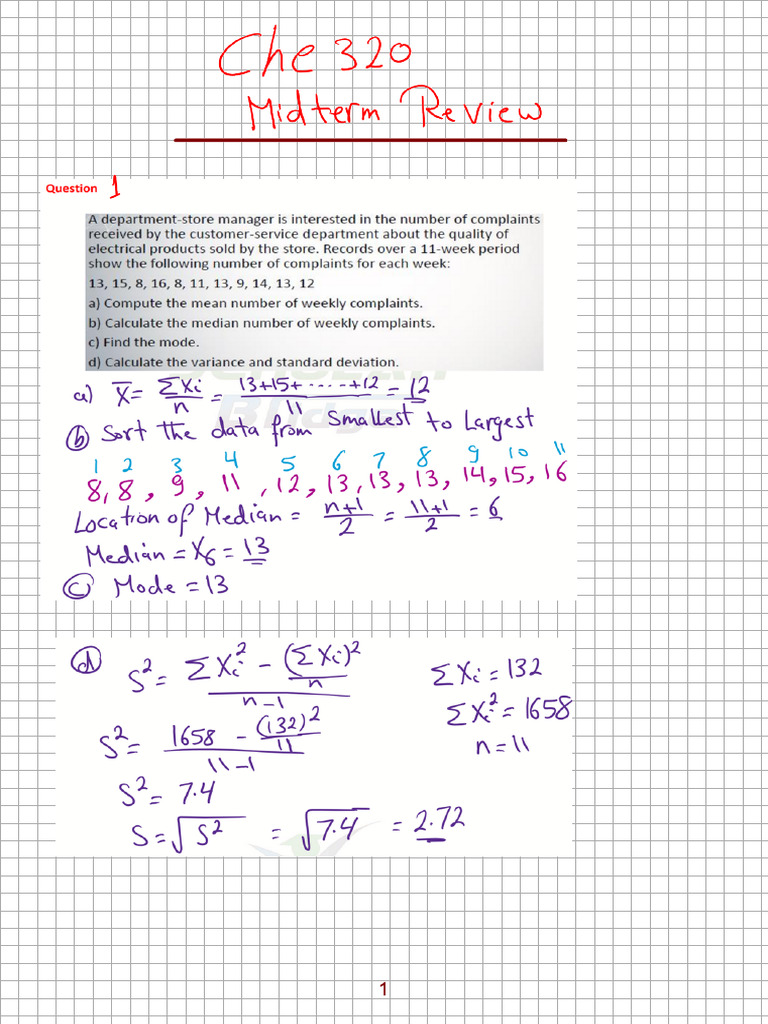 Che 320
Midterm Review
Question 1
A department-store manager is interested in the number of complaints
received by the customer-service department about the quality of
electrical products sold by the store. Records over a 11-week period
show the following number of complaints for each week:
13, 15, 8, 16, 8, 11, 13, 9, 14, 13, 12
a) Compute the mean number of weekly complaints.
b) Calculate the median number of weekly complaints.
c) Find the mode.
d) Calculate the variance and standard deviation.
a) X̅ = ΣXi/n = 13+15+.....+12/11 = 12
b) Sort the data from Smallest to Largest
1 2 3 4 5 6 7 8 9 10 11
8, 8, 9, 11, 12, 13, 13, 13, 14, 15, 16
Location of Median = n+1/2 = 11+1/2 = 6
Median = X6 = 13
c) Mode = 13
d) S² = (ΣXi² - (ΣXi)²/n)/(n-1)
ΣXi = 132
ΣXi² = 1658
n = 11
S² = (1658 - (132)²/11)/(11-1)
S² = 7.4
S = √S² = √7.4 = 2.72
1